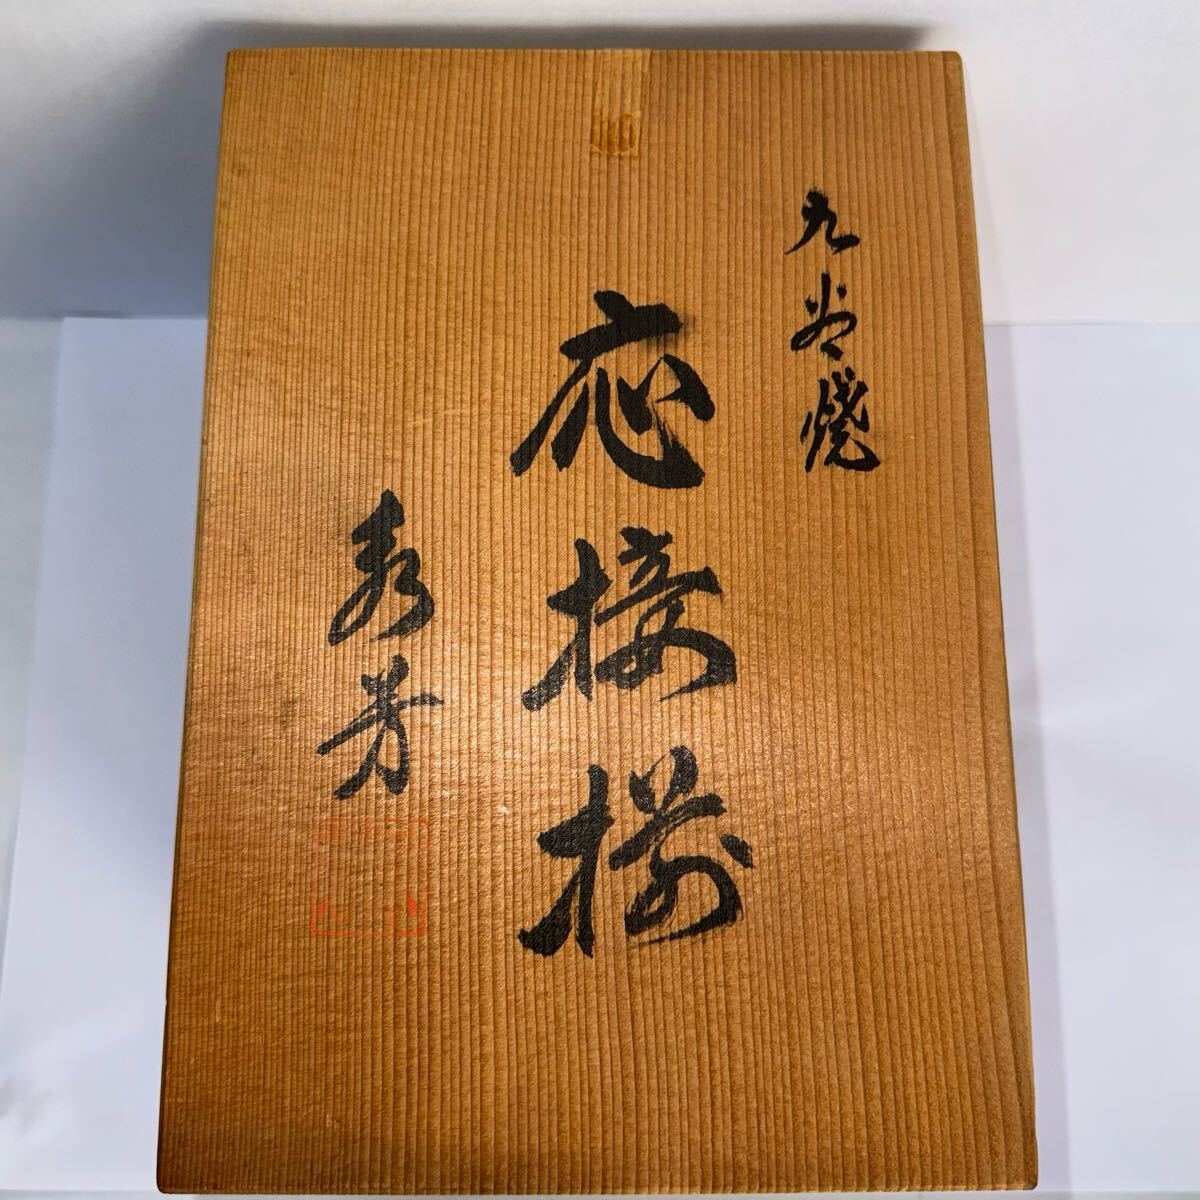 九谷焼
応接揃
秀芳